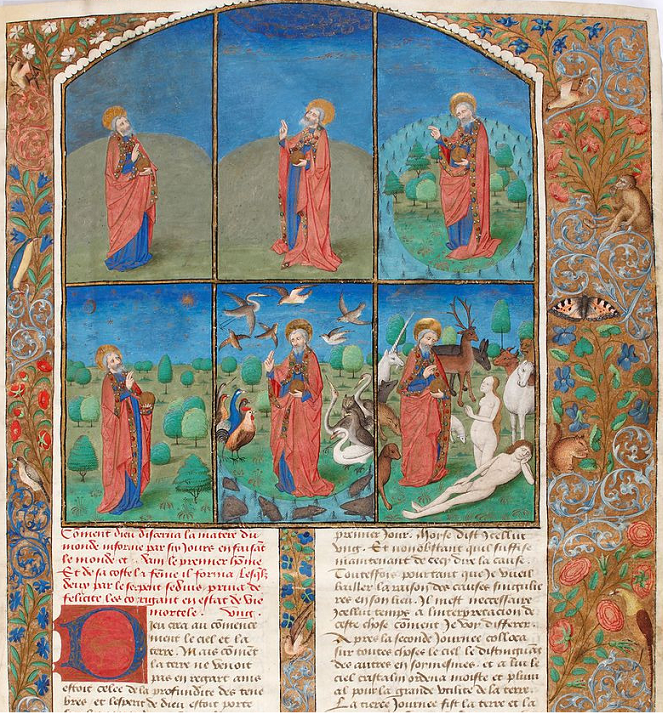 Coment dieu discerna la matere du
monde informe par six Jours en faisant
le monde et Adam le premier hom̄e
Et de sa coste la fem̄e il forma Lesq̄lz
deux par le serpent seduis priua de
felicite les corrigant en estat de vie
mortele. Vng.
Dieu crea au com̄ence
ment le ciel et la
terre. Mais com̄ēt
la terre ne venoit
pas en regart ains
estoit celee de la profundite des tene
bres et lesperit de dieu estoit porte
premier Jour. Moyse dist Icellui
vng. Et nonobstant que Il suffise
maintenant de cecy dire la cause.
Toutesfois pourtant que Je vueil
bailler la raison des causes singulie
res en son lieu. Il mest neccessaire
Jcellui temps a linterpretacion de
ceste chose com̄ent Je doy differer.
Apres la seconde Journee colloca
sur toutes choses le ciel le distinguāt
des autres en formesmes. et a lui le
ciel cristalin ordena moiste et pluui
al pour la grande vtilite de la terre.
La tierce Journee fist la terre et la